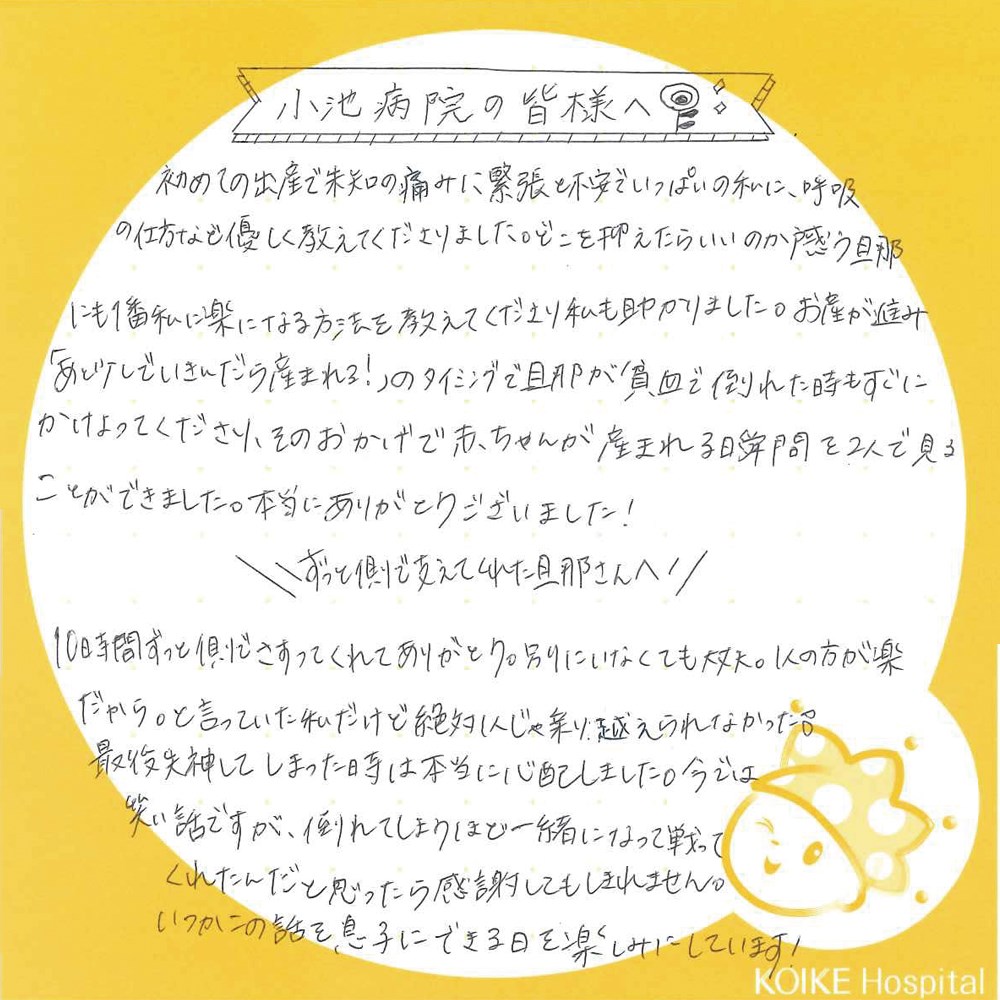 小池病院の皆様へ
初めての出産で未知の痛みに緊張と不安でいっぱいの私に、呼吸
の仕方など優しく教えてくださりました。どこを抑えたらいいのか戸惑う旦那
にも1番私に楽になる方法を教えてくださり私も助かりました。お産が進み
「あと少しでいきんだら産まれる!」のタイミングで旦那が貧血で倒れた時もすぐに
かけよってくださり、そのおかげで赤ちゃんが産まれる瞬間を2人で見る
ことができました。本当にありがとうございました!
\\ずっと側で支えてくれた旦那さんへ//
10時間ずっと側でさすってくれてありがとう。別にいなくても大丈夫。1人の方が楽
だから。と言っていた私だけど絶対1人じゃ乗り越えられなかった。
最後失神してしまった時は本当に心配しました。今では
笑い話ですが、倒れてしまうほど一緒になって戦って
くれたんだと思ったら感謝してもしきれません。
いつかこの話を息子にできる日を楽しみにしています!
KOIKE Hospital